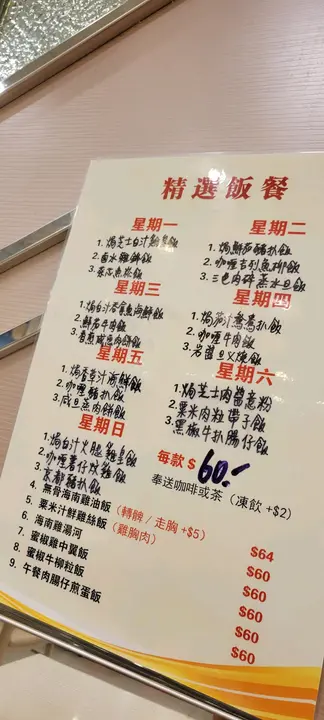 精選飯餐
星期一
1. 焗芝士白汁
2. 鹵水雞髀飯
3. 菜芯魚崧飯
星期二
1. 焗鮮茄豬扒飯
2. 咖喱吉列魚柳飯
3. 三色肉碎蒸水旦飯
星期三
1. 焗白汁吞拿魚海鮮飯
2. 鮮茄牛肉飯
3. 魚肉餅飯
星期四
1. 焗茄汁扒飯
2. 咖喱牛肉飯
3. 旦叉燒飯
星期五
1. 焗香草汁海鮮飯
2. 咖喱豬扒飯
3. 咸旦魚肉餅飯
星期六
1. 焗芝士肉醬意粉
2. 粟米肉粒帶子飯
3. 黑椒牛扒腸仔飯
星期日
1. 焗白汁火腿雞皇飯
2. 咖喱薯仔炆雞飯
3. 京都豬扒飯
每款 $ 60.-
奉送咖啡或茶 (凍飲 +$2)
4. 無骨海南雞油飯 (轉髀 / 走胸 +$5) $64
5. 粟米汁鮮雞絲飯 (雞胸肉) $60
6. 海南雞湯河 $60
7. 蜜椒雞中翼飯 $60
8. 蜜椒牛柳粒飯 $60
9. 午餐肉腸仔煎蛋飯 $60